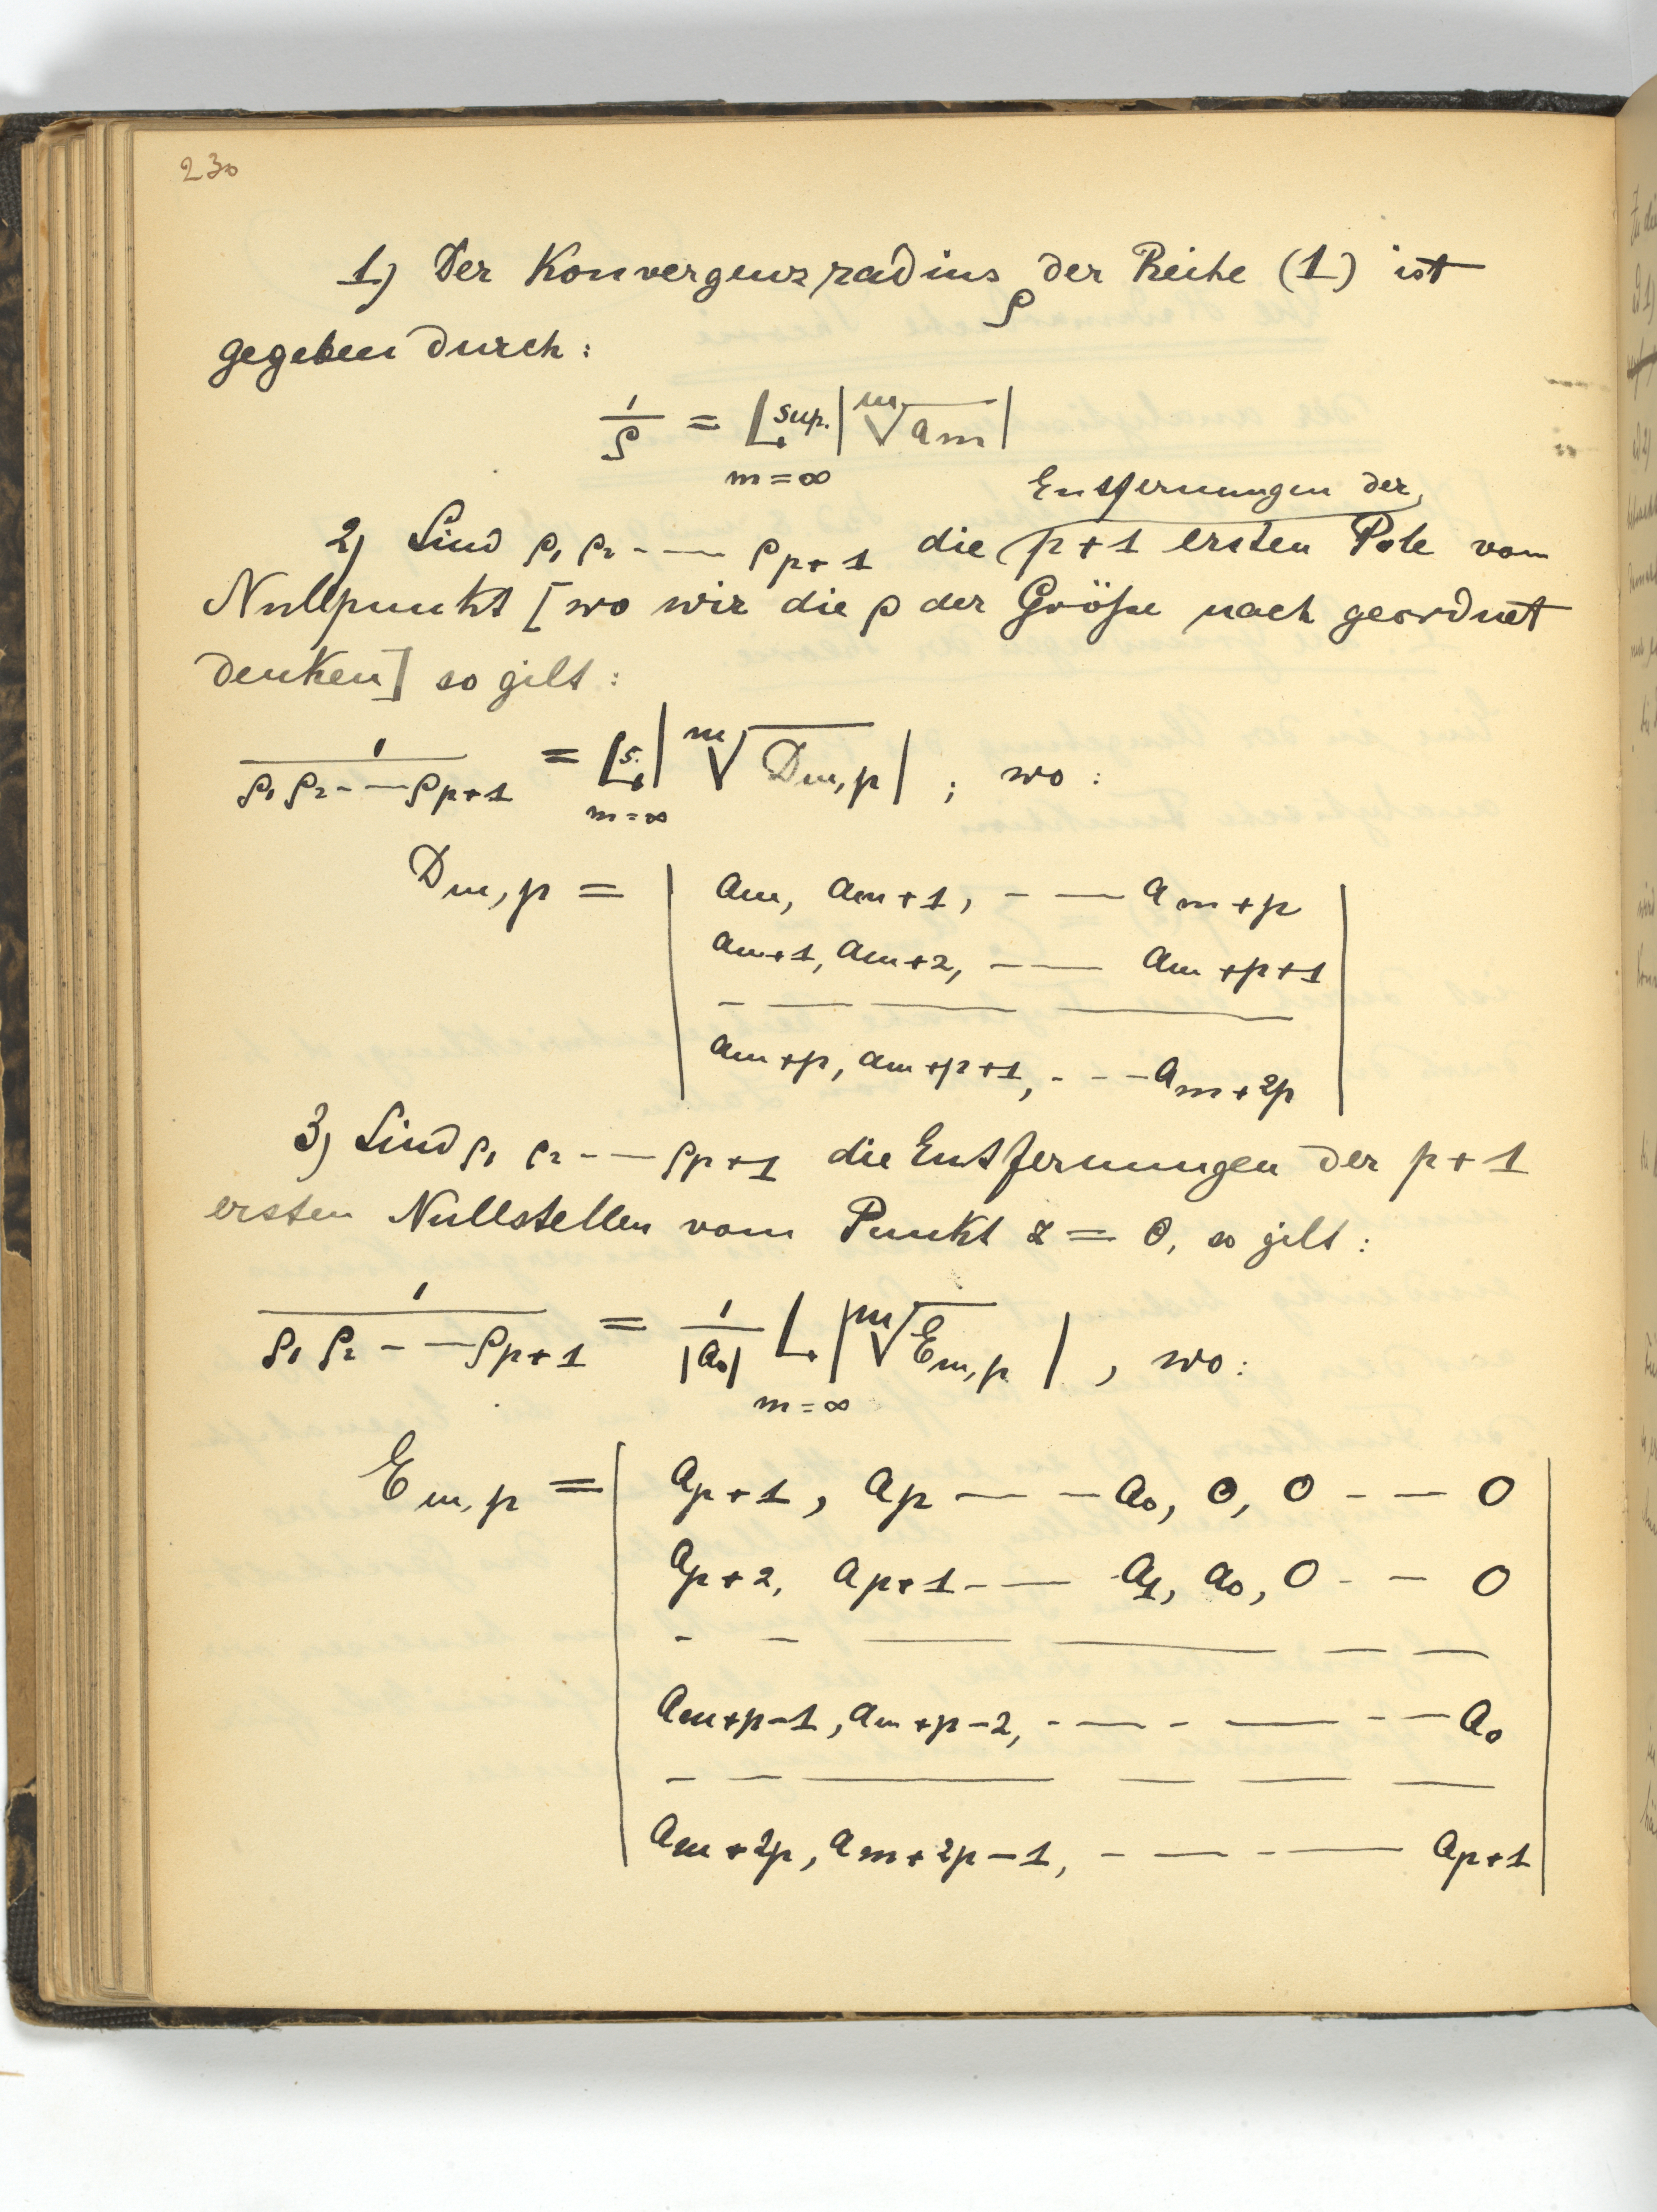 230
1) Der Konvergenzradius ρ der Reihe (1) ist
gegeben durch:
1/ρ = L sup. | ᵐ√a_m |
m = ∞
Entfernungen der
2) Sind ρ₁ ρ₂ - — ρ_{p+1} die p+1 ersten Pole vom
Nullpunkt [wo wir die ρ der Größe nach geordnet
denken] so gilt:
1/(ρ₁ ρ₂ - — ρ_{p+1}) = L s. | ᵐ√D_{m,p} | ; wo:
m = ∞
D_{m,p} = | a_m, a_{m+1}, - — a_{m+p} |
a_{m+1}, a_{m+2}, — — a_{m+p+1}
- — — —
a_{m+p}, a_{m+p+1}, - - - a_{m+2p}
3) Sind ρ₁ ρ₂ - — ρ_{p+1} die Entfernungen der p+1
ersten Nullstellen vom Punkt z = 0, so gilt:
1/(ρ₁ ρ₂ - — ρ_{p+1}) = 1/|a₀| L | ᵐ√E_{m,p} | , wo:
m = ∞
E_{m,p} = | a_{p+1}, a_p — - a₀, 0, 0 - — 0 |
a_{p+2}, a_{p+1} - — a₁, a₀, 0 - — 0
- - — — — —
a_{m+p-1}, a_{m+p-2}, - — - — - — a₀
— — — — — —
a_{m+2p}, a_{m+2p-1}, - — - — a_{p+1}